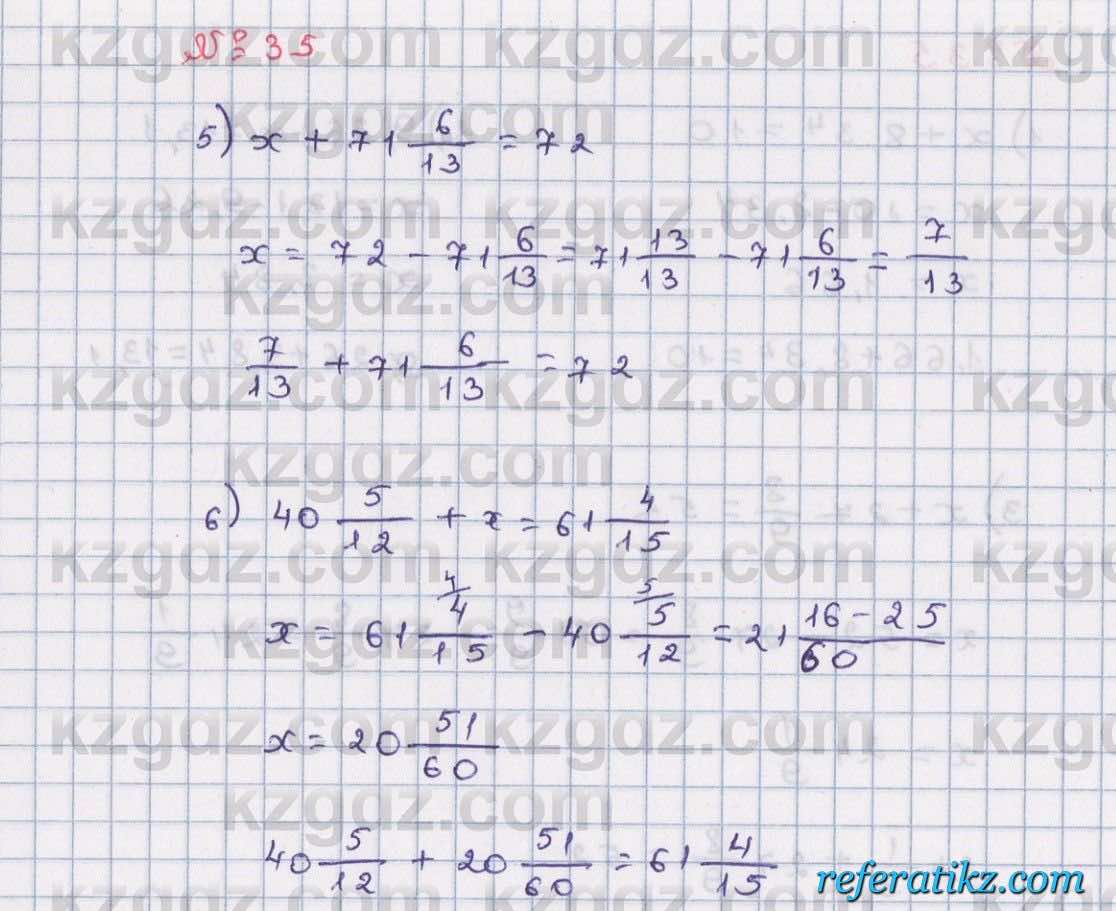 № 35
5) x + 71 6/13 = 72
x = 72 - 71 6/13 = 71 13/13 - 71 6/13 = 7/13
7/13 + 71 6/13 = 72
6) 40 5/12 + x = 61 4/15
x = 61 4/15 (4/ - 40 5/12 (5/ = 21 16-25/60
x = 20 51/60
40 5/12 + 20 51/60 = 61 4/15
referatikz.com
kzgdz.com